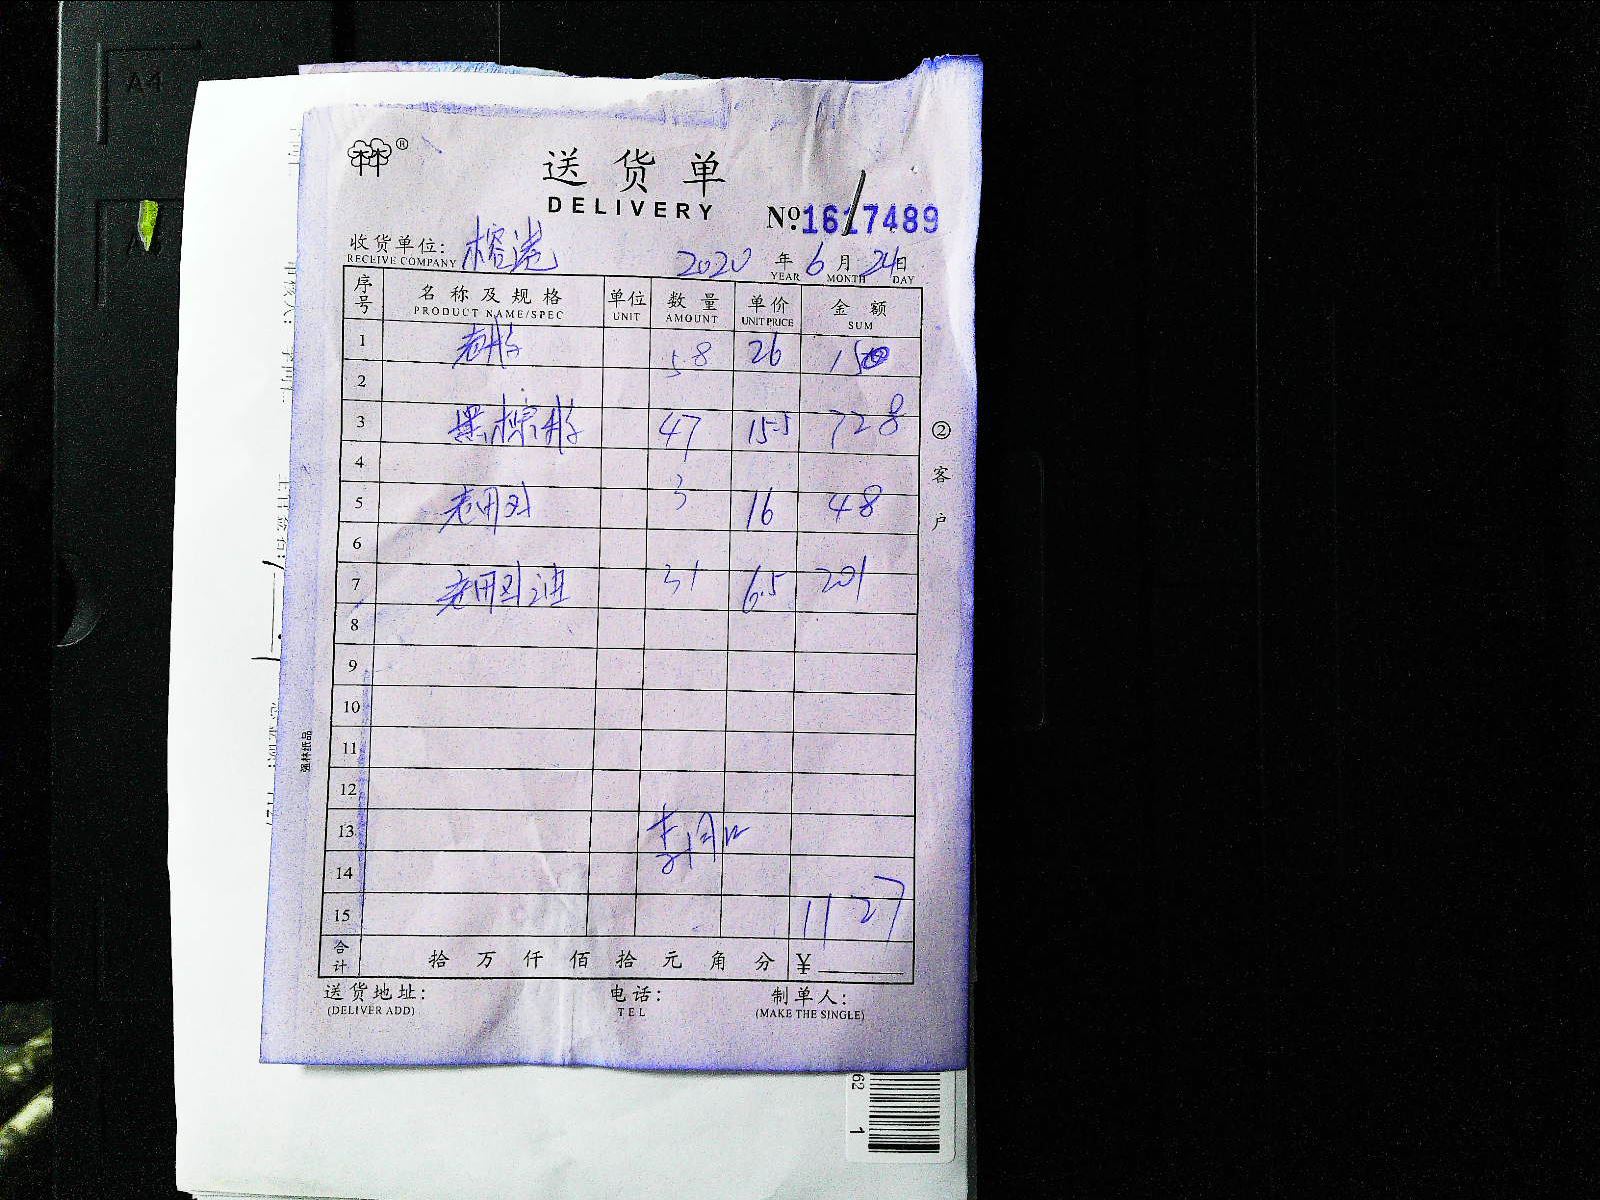 A4
®
送货单
DELIVERY
No:1617489
收货单位: 榕港 2020 年 6 月 24 日
RECEIVE COMPANY YEAR MONTH DAY
序号 名称及规格 单位 数量 单价 金额
PRODUCT NAME/SPEC UNIT AMOUNT UNIT PRICE SUM
1 5.8 26 150
2
3 47 15.5 728
4
5 3 16 48
6
7 31 6.5 201
8
9
10
11
12
13
14
15 1127
合计 拾 万 仟 佰 拾 元 角 分 ¥
送货地址: 电话: 制单人:
(DELIVER ADD) TEL (MAKE THE SINGLE)
② 客户
强林纸品
62
1